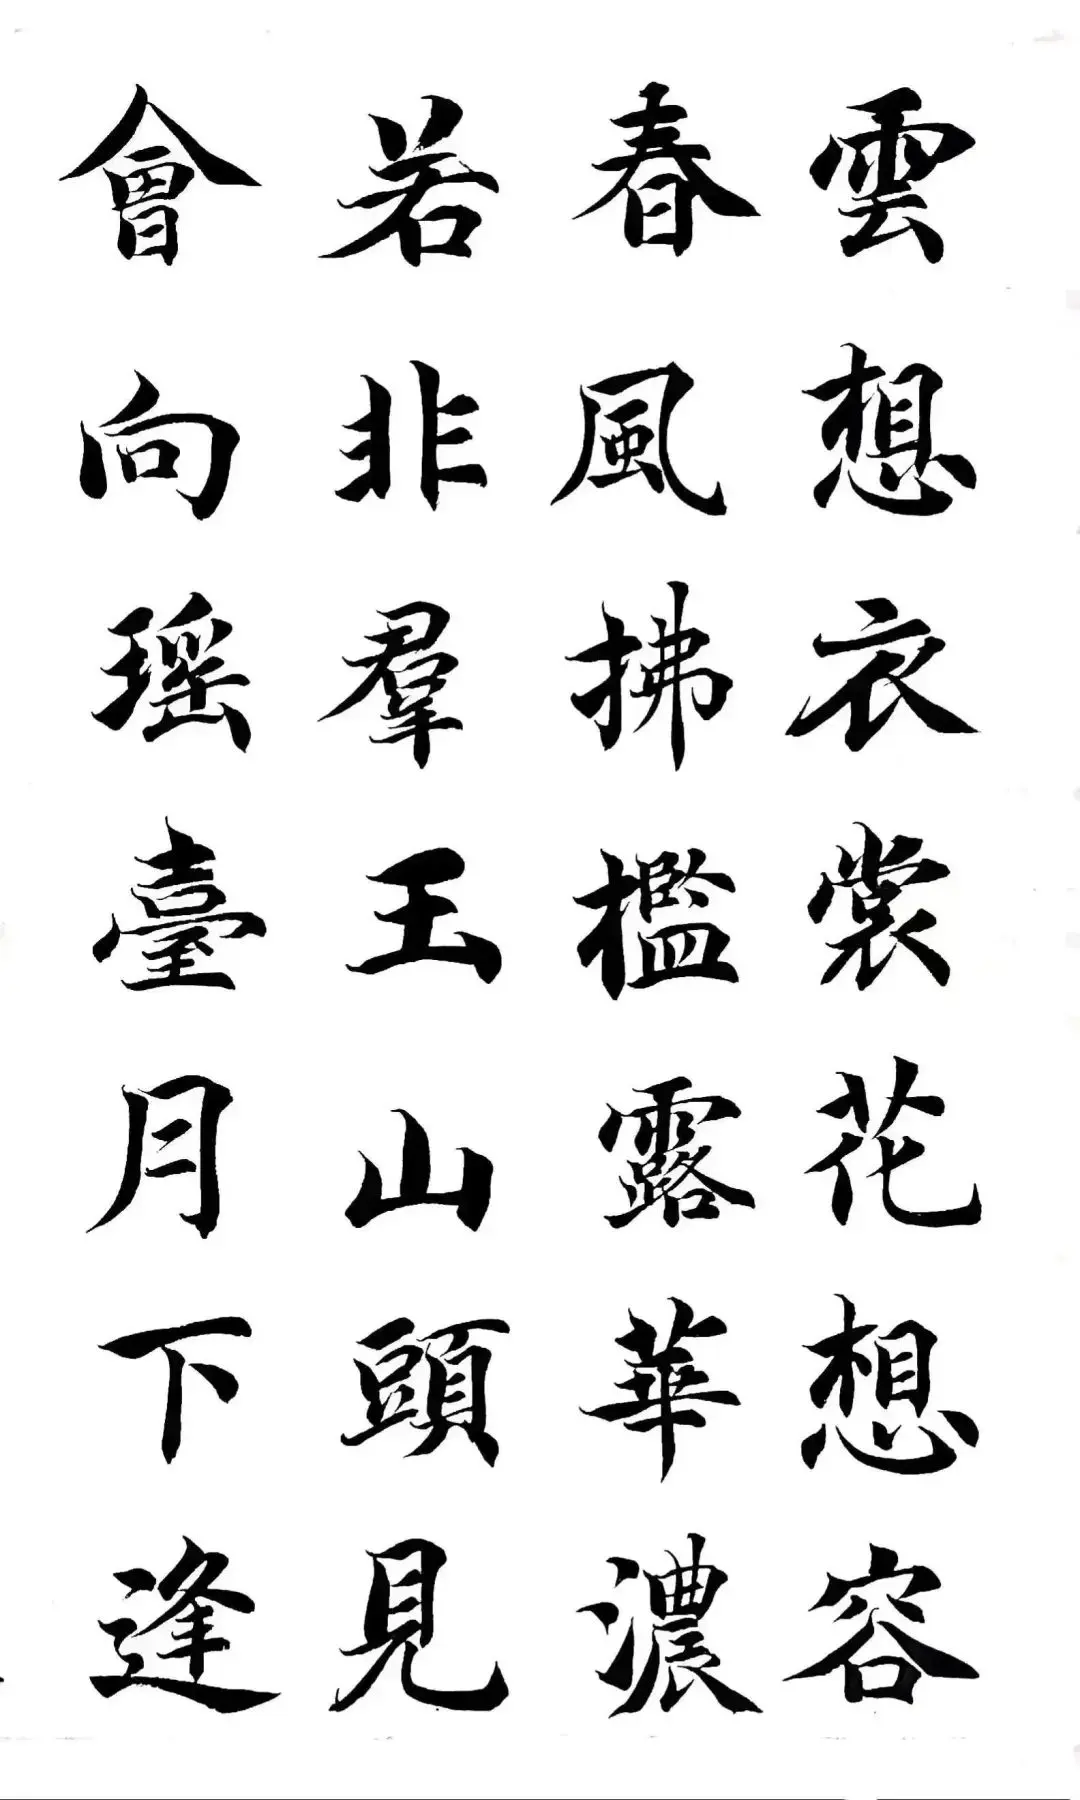 雲想衣裳花想容
春風拂檻露華濃
若非羣王山頭見
會向瑶臺月下逢